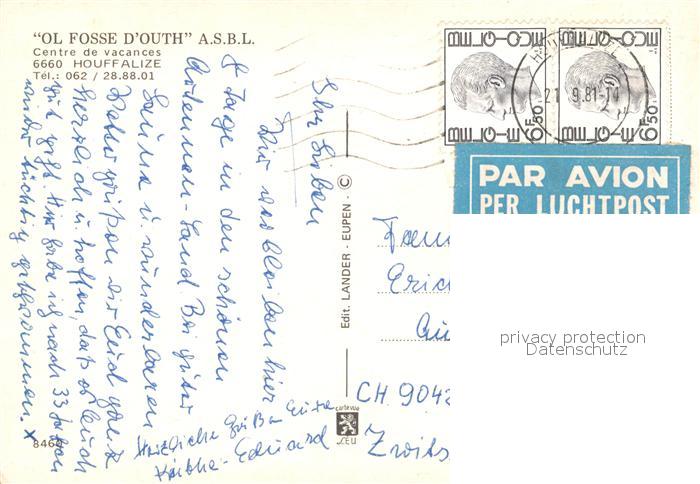 "OL FOSSE D'OUTH" A.S.B.L.
Centre de vacances
6660 HOUFFALIZE
Tél.: 062 / 28.88.01
Ihr Lieben
Wir zwei bleiben hier
8 Tage in den schönen
Ardennen-Land Bei guter
Laune u. wunderbaren
Wetter grüßen wir Euch ganz
herzlich u. hoffen, daß es Euch
gut geht. Hier habe ich nach 33 Jahren
wieder tüchtig geschwommen. x
Herzliche Grüße Eure
Eduard
8460
Edit. LANDER - EUPEN - ©
cartevue
BELGIQUE
BELGIË
6F50
BELGIQUE
BELGIË
6F50
21 9.81-14
PAR AVION
PER LUCHTPOST
Fam
Eric
CH. 9042
privacy protection
Datenschutz